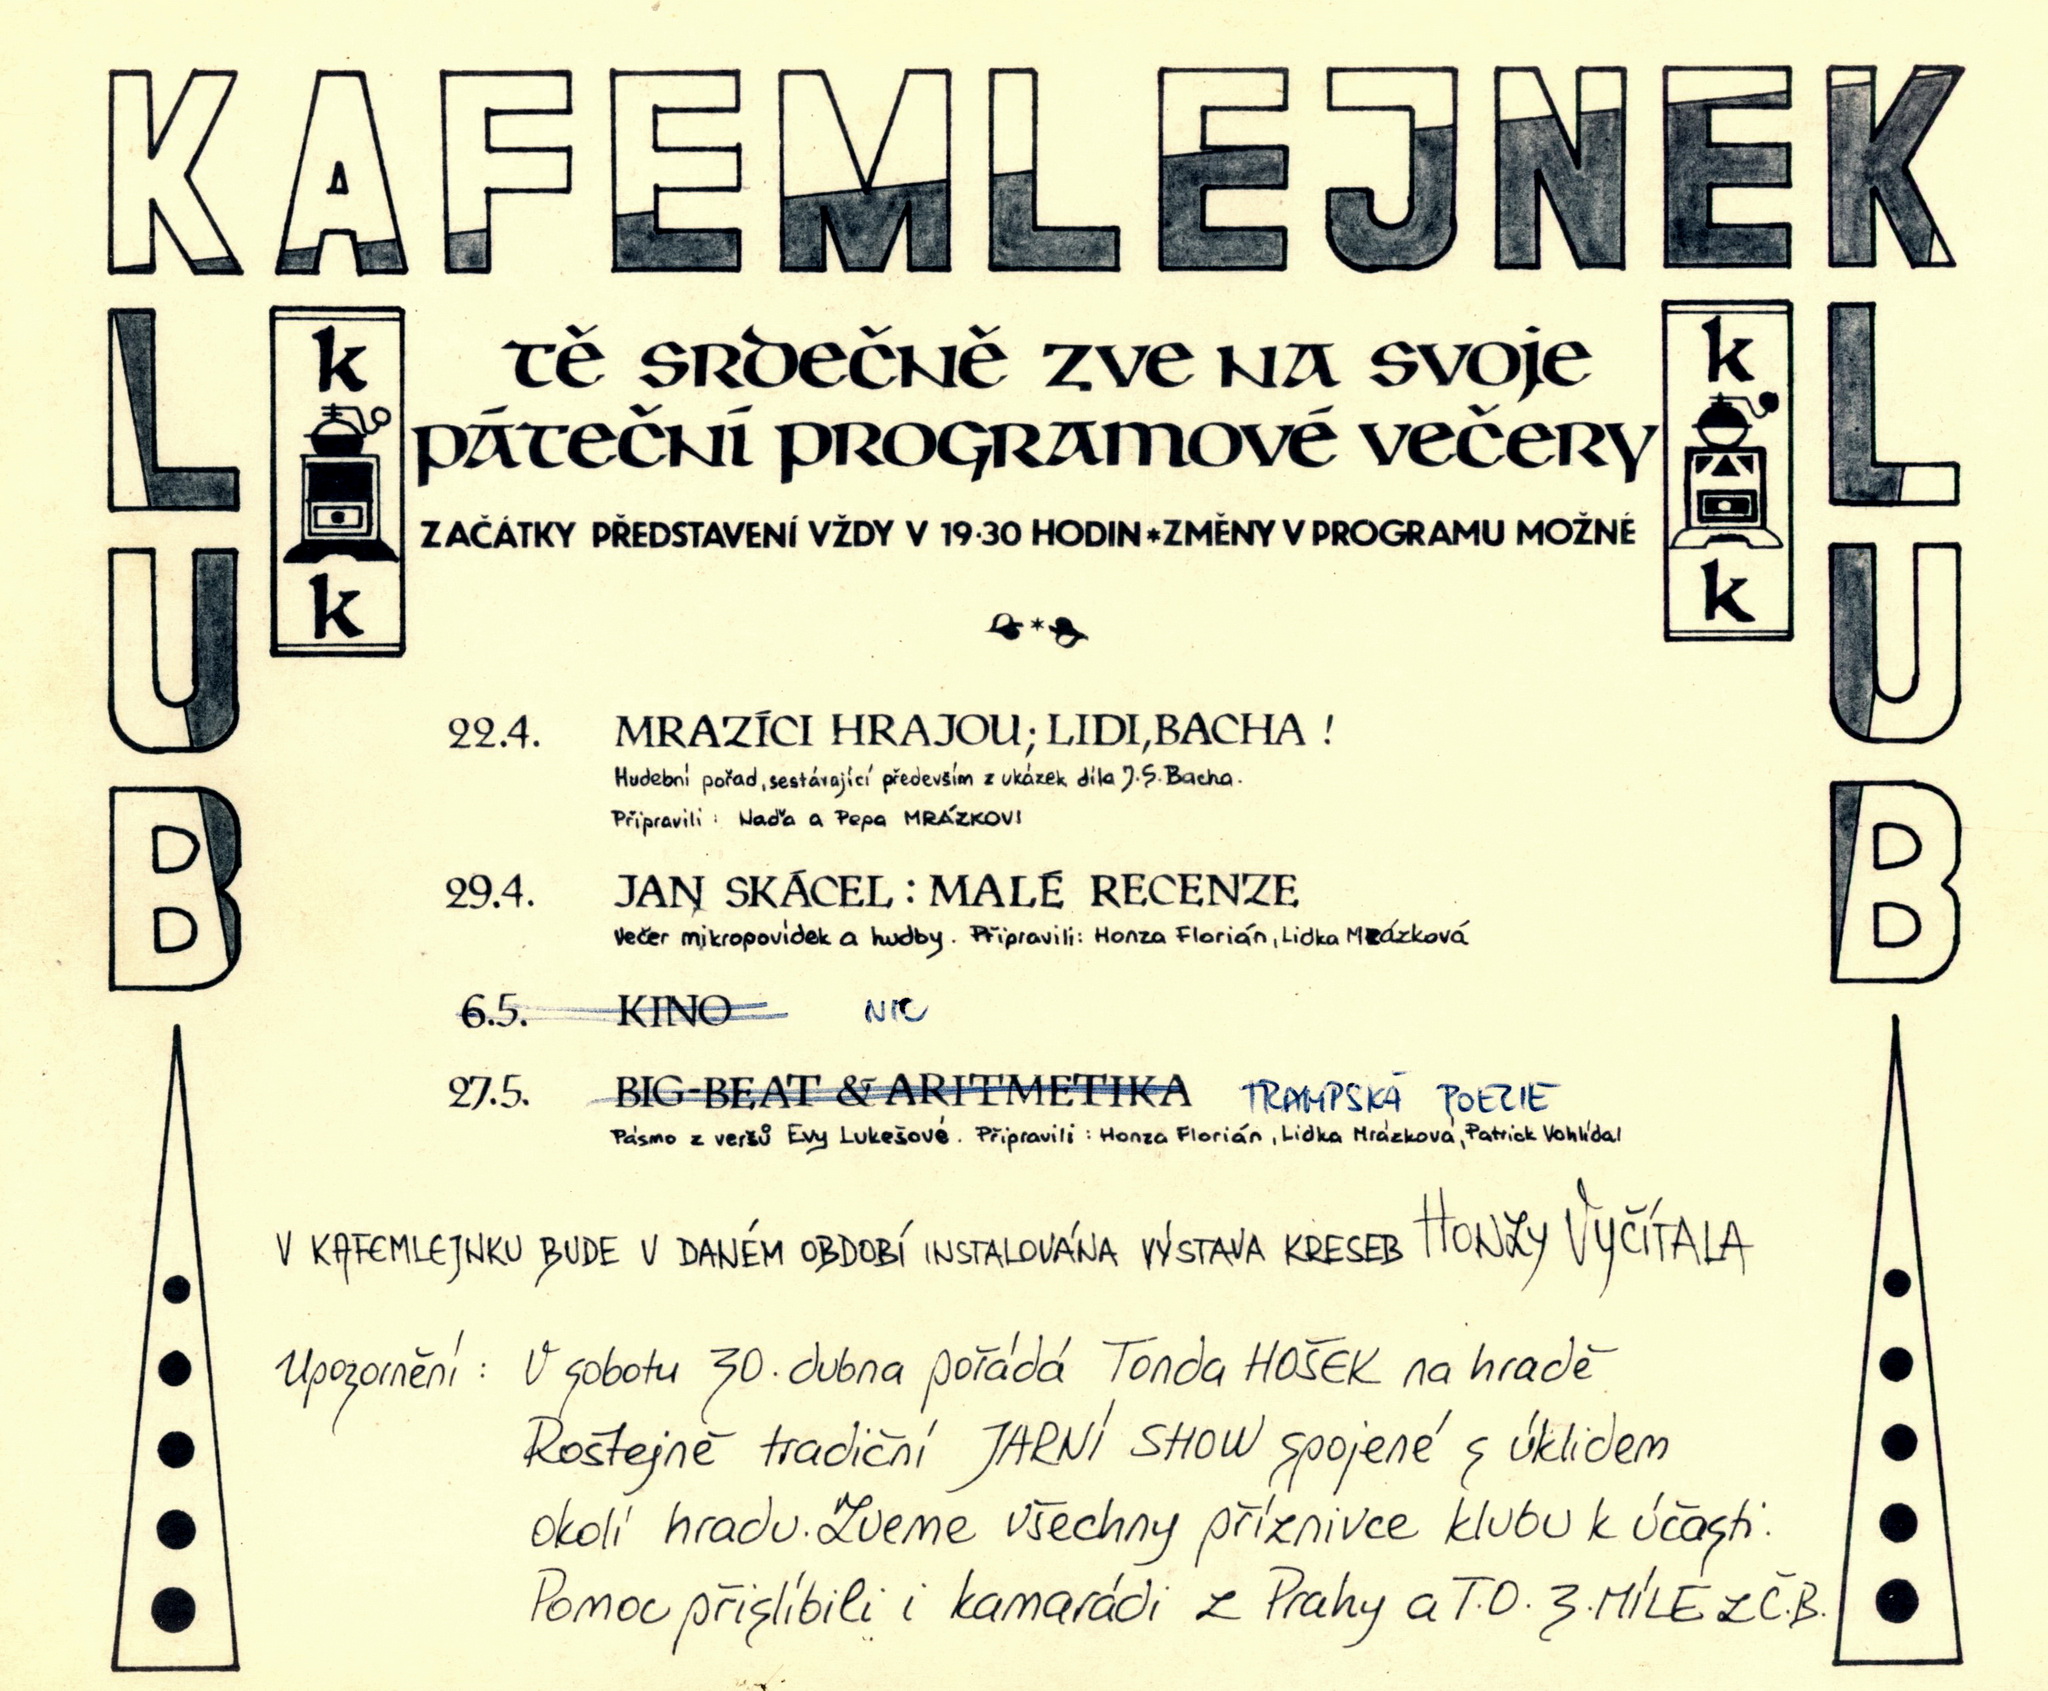 KAFEMLEJNEK
KLUB
KLUB
k
k
k
k
tě srdečně zve na svoje
páteční programové večery
ZAČÁTKY PŘEDSTAVENÍ VŽDY V 19·30 HODIN*ZMĚNY V PROGRAMU MOŽNÉ
22.4. MRAZÍCI HRAJOU; LIDI, BACHA !
Hudební pořad, sestávající především z ukázek díla J.S. Bacha.
Připravili: Naďa a Pepa MRÁZKOVI
29.4. JAN SKÁCEL: MALÉ RECENZE
Večer mikropovídek a hudby. Připravili: Honza Florián, Lidka Mrázková
6.5. KINO NIC
27.5. BIG-BEAT & ARITMETIKA TRAMPSKÁ POEZIE
Pásmo z veršů Evy Lukešové. Připravili: Honza Florián, Lidka Mrázková, Patrick Vohlídal
V KAFEMLEJNKU BUDE V DANÉM OBDOBÍ INSTALOVÁNA VÝSTAVA KRESEB HONZY VYČÍTALA
Upozornění: V sobotu 30. dubna pořádá Tonda HOŠEK na hradě
Roštejně tradiční JARNÍ SHOW spojené s úklidem
okolí hradu. Zveme všechny příznivce klubu k účasti.
Pomoc přislíbili i kamarádi z Prahy a T.O. 3. MÍLE z Č.B.